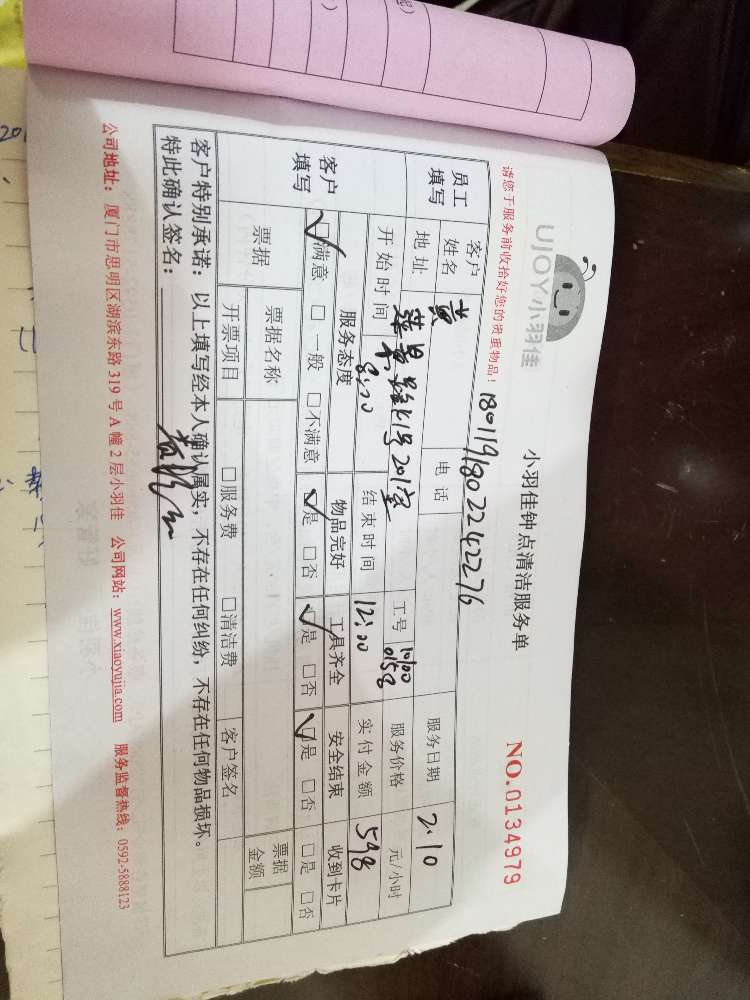 UJOY小羽佳
小羽佳钟点清洁服务单
请您于服务前收拾好您的贵重物品！
NO.0134979
员工填写
客户姓名 黄
电话
服务日期 2.10
地址 201室
工号
服务价格 元/小时
开始时间 8:00
结束时间 12:00
实付金额 598
客户填写
服务态度 物品完好 工具齐全 安全结束 收到卡片
☑满意 □一般 □不满意 ☑是 □否 ☑是 □否 ☑是 □否 □是 □否
票据
票据名称
票据金额
开票项目 □服务费 □清洁费 客户签名
客户特别承诺：以上填写经本人确认属实，不存在任何纠纷，不存在任何物品损坏。
特此确认签名：
公司地址：厦门市思明区湖滨东路 319 号 A 幢 2 层小羽佳 公司网站：www.xiaoyujia.com 服务监督热线：0592-5888123